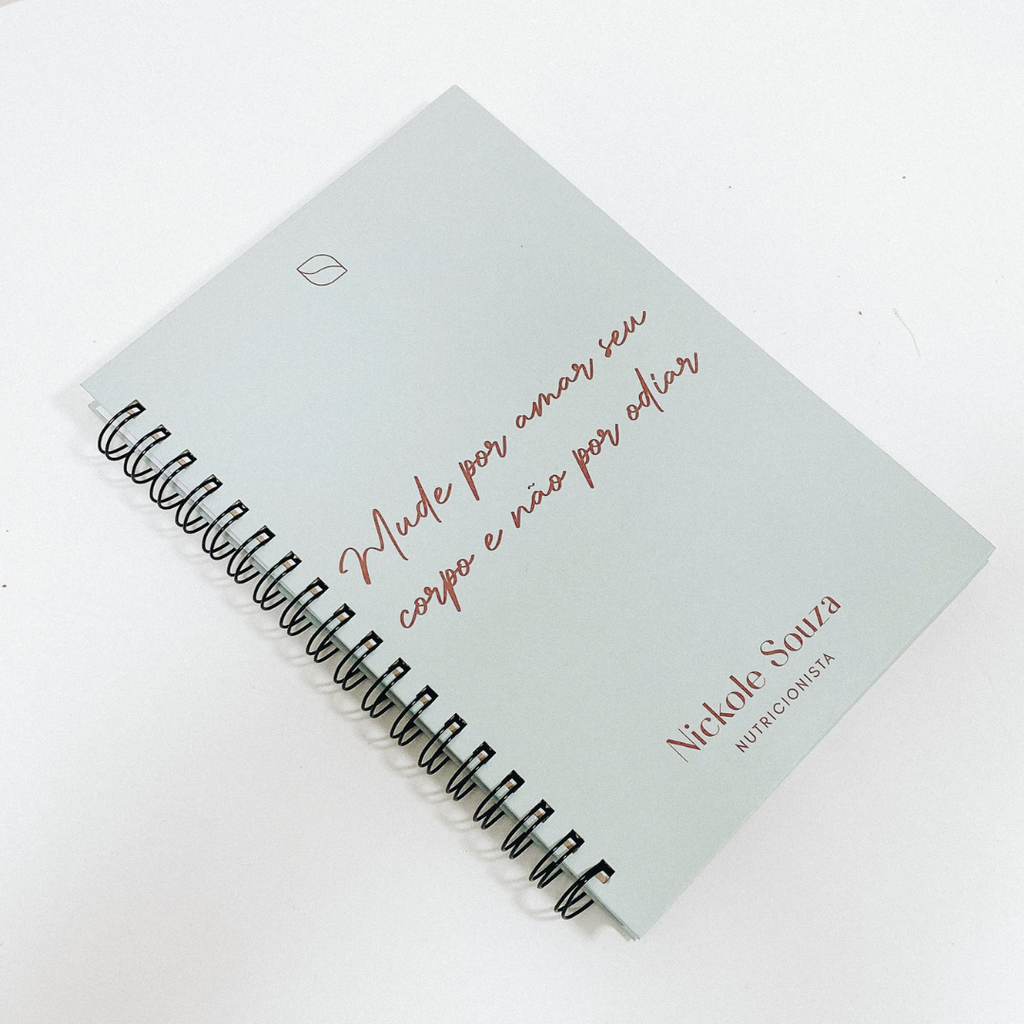 Mude por amar seu
corpo e não por odiar
Nickole Souza
NUTRICIONISTA